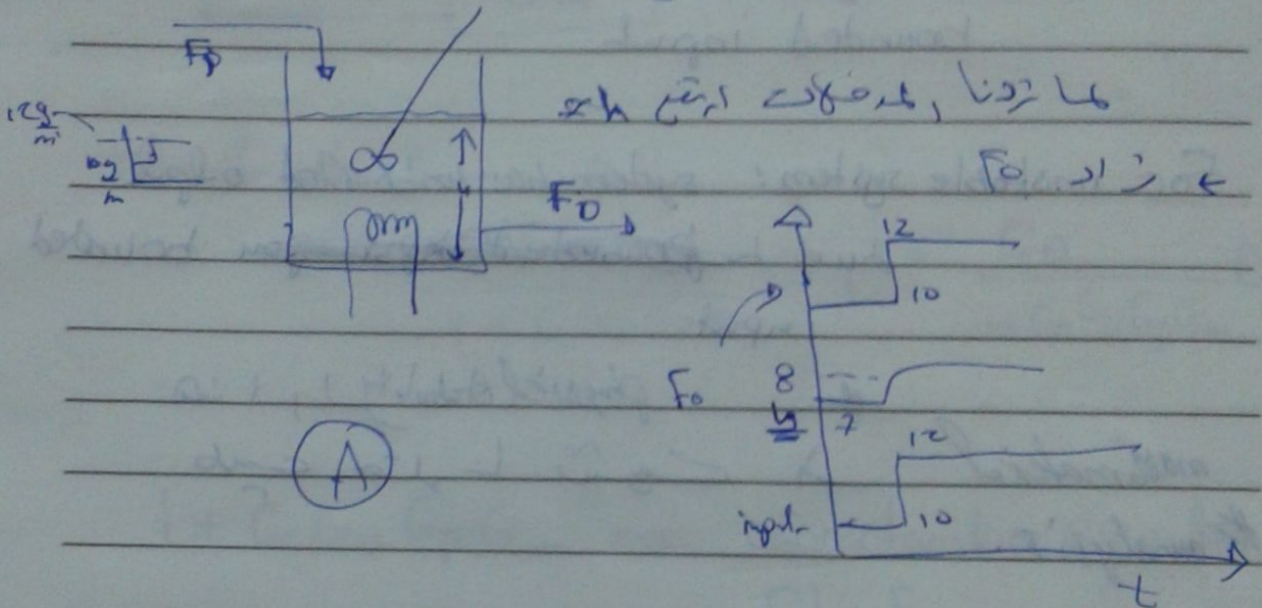 Fp
12 g/m
10 g/m
لما زدنا المدخلات ارتفع h
← زاد Fo
Fo
12
10
Fo 8
y 7
12
input 10
A
t